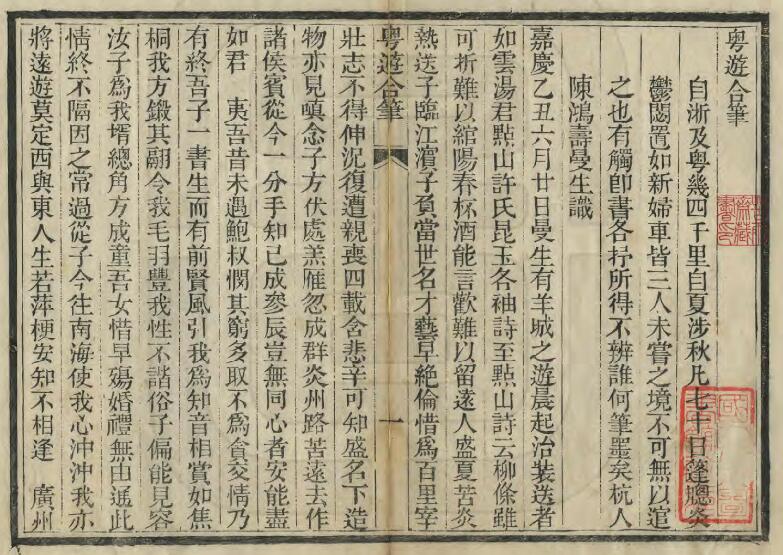 粵遊合筆
自浙及粵幾四千里自夏涉秋凡七十日篷窻炎
鬱閟置如新婦車皆三人未嘗之境不可無以諠
之也有觸卽書各抒所得不辨誰何筆墨矣杭人
陳鴻壽曼生識
嘉慶乙丑六月廿日曼生有羊城之遊晨起治裝送者
如雲湯君㸃山許氏昆玉各袖詩至㸃山詩云柳條雖
可折難以綰陽春杯酒能言歡難以留遠人盛夏苦炎
熱送子臨江濱子負當世名才藝早絕倫惜爲百里宰
粵遊合筆 一
壯志不得伸況復遭親喪四載含悲辛可知盛名下造
物亦見嗔念子方伏處羔雁忽成群炎州路苦遠去作
諸侯賓從今一分手知己成參辰豈無同心者安能盡
如君　夷吾昔未遇鮑叔憫其窮多取不爲貪交情乃
有終吾子一書生而有前賢風引我爲知音相賞如焦
桐我方鎩其翮令我毛羽豐我性不諧俗子偏能見容
汝子爲我壻總角方成童吾女惜早殤婚禮無由通此
情終不隔因之常過從子今往南海使我心沖沖我亦
將遠遊莫定西與東人生若萍梗安知不相逢　廣州